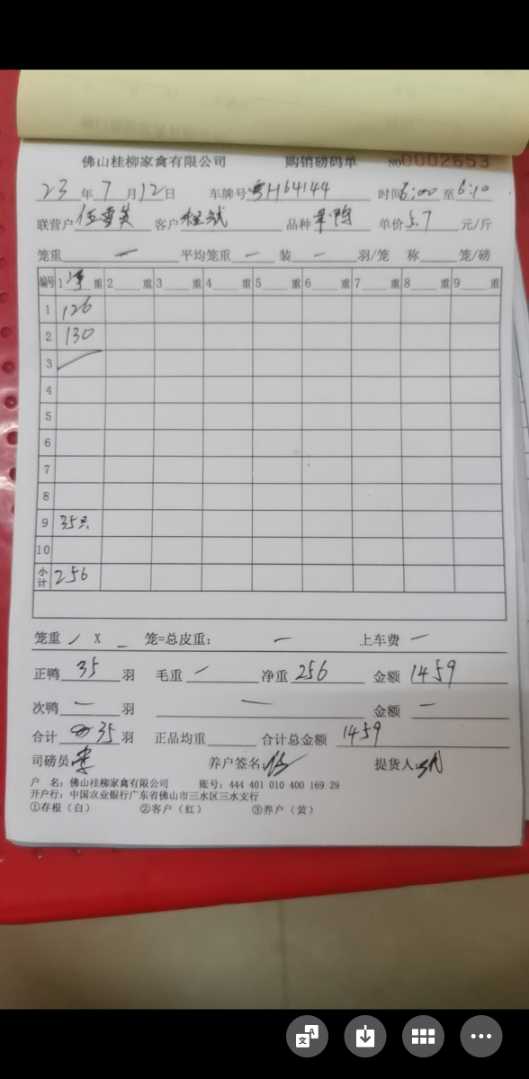 佛山桂柳家禽有限公司 购销磅码单 №0002653
23年7月12日 车牌号粤H64144 时间6:00至6:10
联营户 客户程斌 品种 单价5.7元/斤
笼重 一 平均笼重 一 装 一 羽/笼 称 笼/磅
编号 1净重 2 重 3 重 4 重 5 重 6 重 7 重 8 重 9 重
1 126
2 130
3
4
5
6
7
8
9 35只
10
小计 256
笼重 X 笼=总皮重: 一 上车费 一
正鸭35羽 毛重 一 净重256 金额1459
次鸭 一 羽 一 金额 一
合计35羽 正品均重 合计总金额1459
司磅员 养户签名 提货人
户 名:佛山桂柳家禽有限公司 账号:444 401 010 400 169 29
开户行:中国农业银行广东省佛山市三水区三水支行
①存根(白) ②客户(红) ③养户(黄)